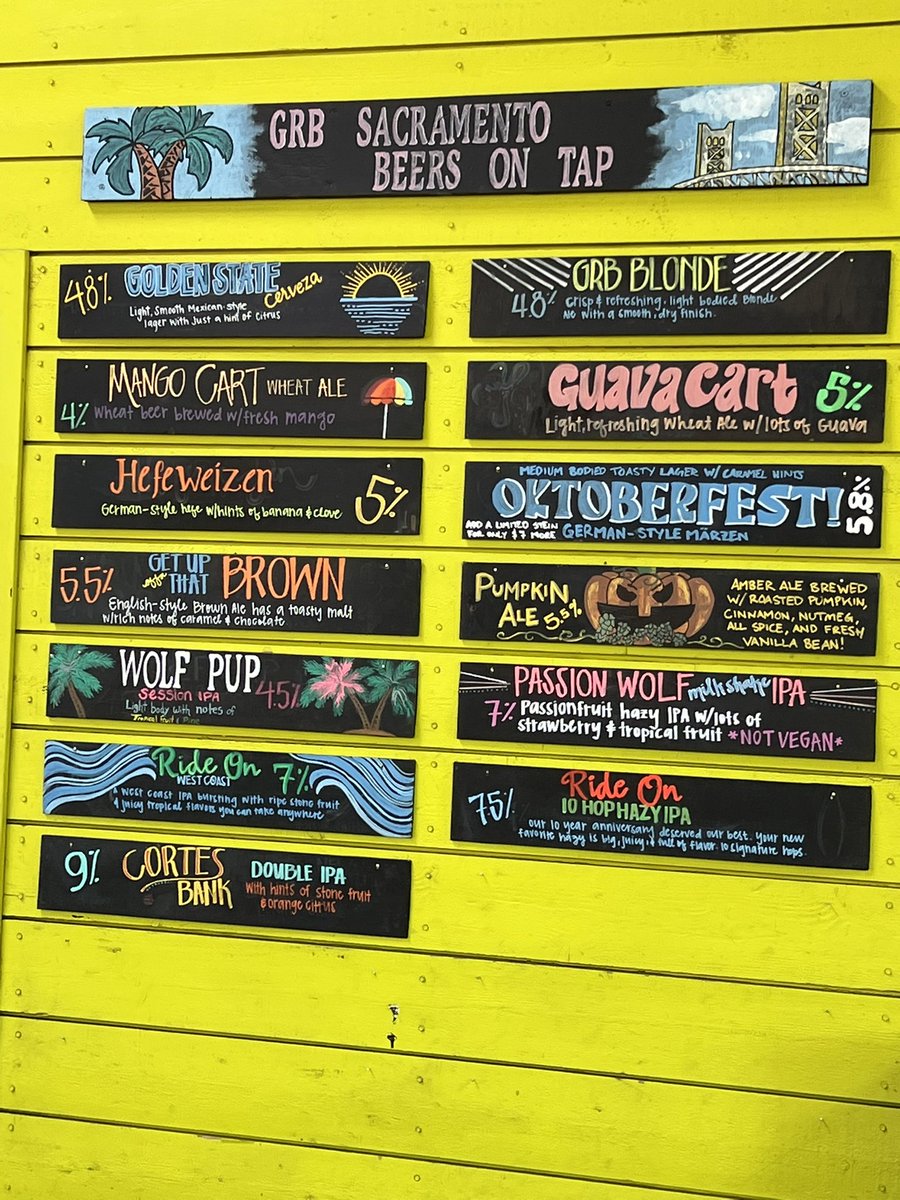 GRB SACRAMENTO
BEERS ON TAP
4.8% GOLDEN STATE Cerveza
Light, Smooth Mexican-style
lager with just a hint of citrus
GRB BLONDE
4.8% Crisp & refreshing, light bodied Blonde
Ale with a smooth, dry finish.
MANGO CART WHEAT ALE
4% Wheat beer brewed w/fresh mango
GUAVA CART 5%
Light, refreshing Wheat Ale w/lots of Guava
Hefeweizen 5%
German-style hefe w/hints of banana & clove
MEDIUM BODIED TOASTY LAGER W/ CARAMEL HINTS
OKTOBERFEST! 5.8%
ADD A LIMITED STEIN
FOR ONLY $7 MORE
GERMAN-STYLE MÄRZEN
5.5% GET UP offa THAT BROWN
English-style Brown Ale has a toasty malt
w/rich notes of caramel & chocolate
PUMPKIN
ALE 5.5%
AMBER ALE BREWED
W/ ROASTED PUMPKIN,
CINNAMON, NUTMEG,
ALL SPICE, AND FRESH
VANILLA BEAN!
WOLF PUP
SESSION IPA 4.5%
Light body with notes of
Tropical fruit & Pine
PASSION WOLF milkshake IPA
7% Passionfruit hazy IPA w/lots of
strawberry & tropical fruit *NOT VEGAN*
Ride On 7%
WEST COAST
A West Coast IPA bursting with ripe stone fruit
& juicy tropical flavors you can take anywhere
7.5% Ride On
10 HOP HAZY IPA
Our 10 year anniversary deserved our best. Your new
favorite hazy is big, juicy, & full of flavor. 10 signature hops.
9% CORTES
BANK
DOUBLE IPA
With hints of stone fruit
& orange citrus